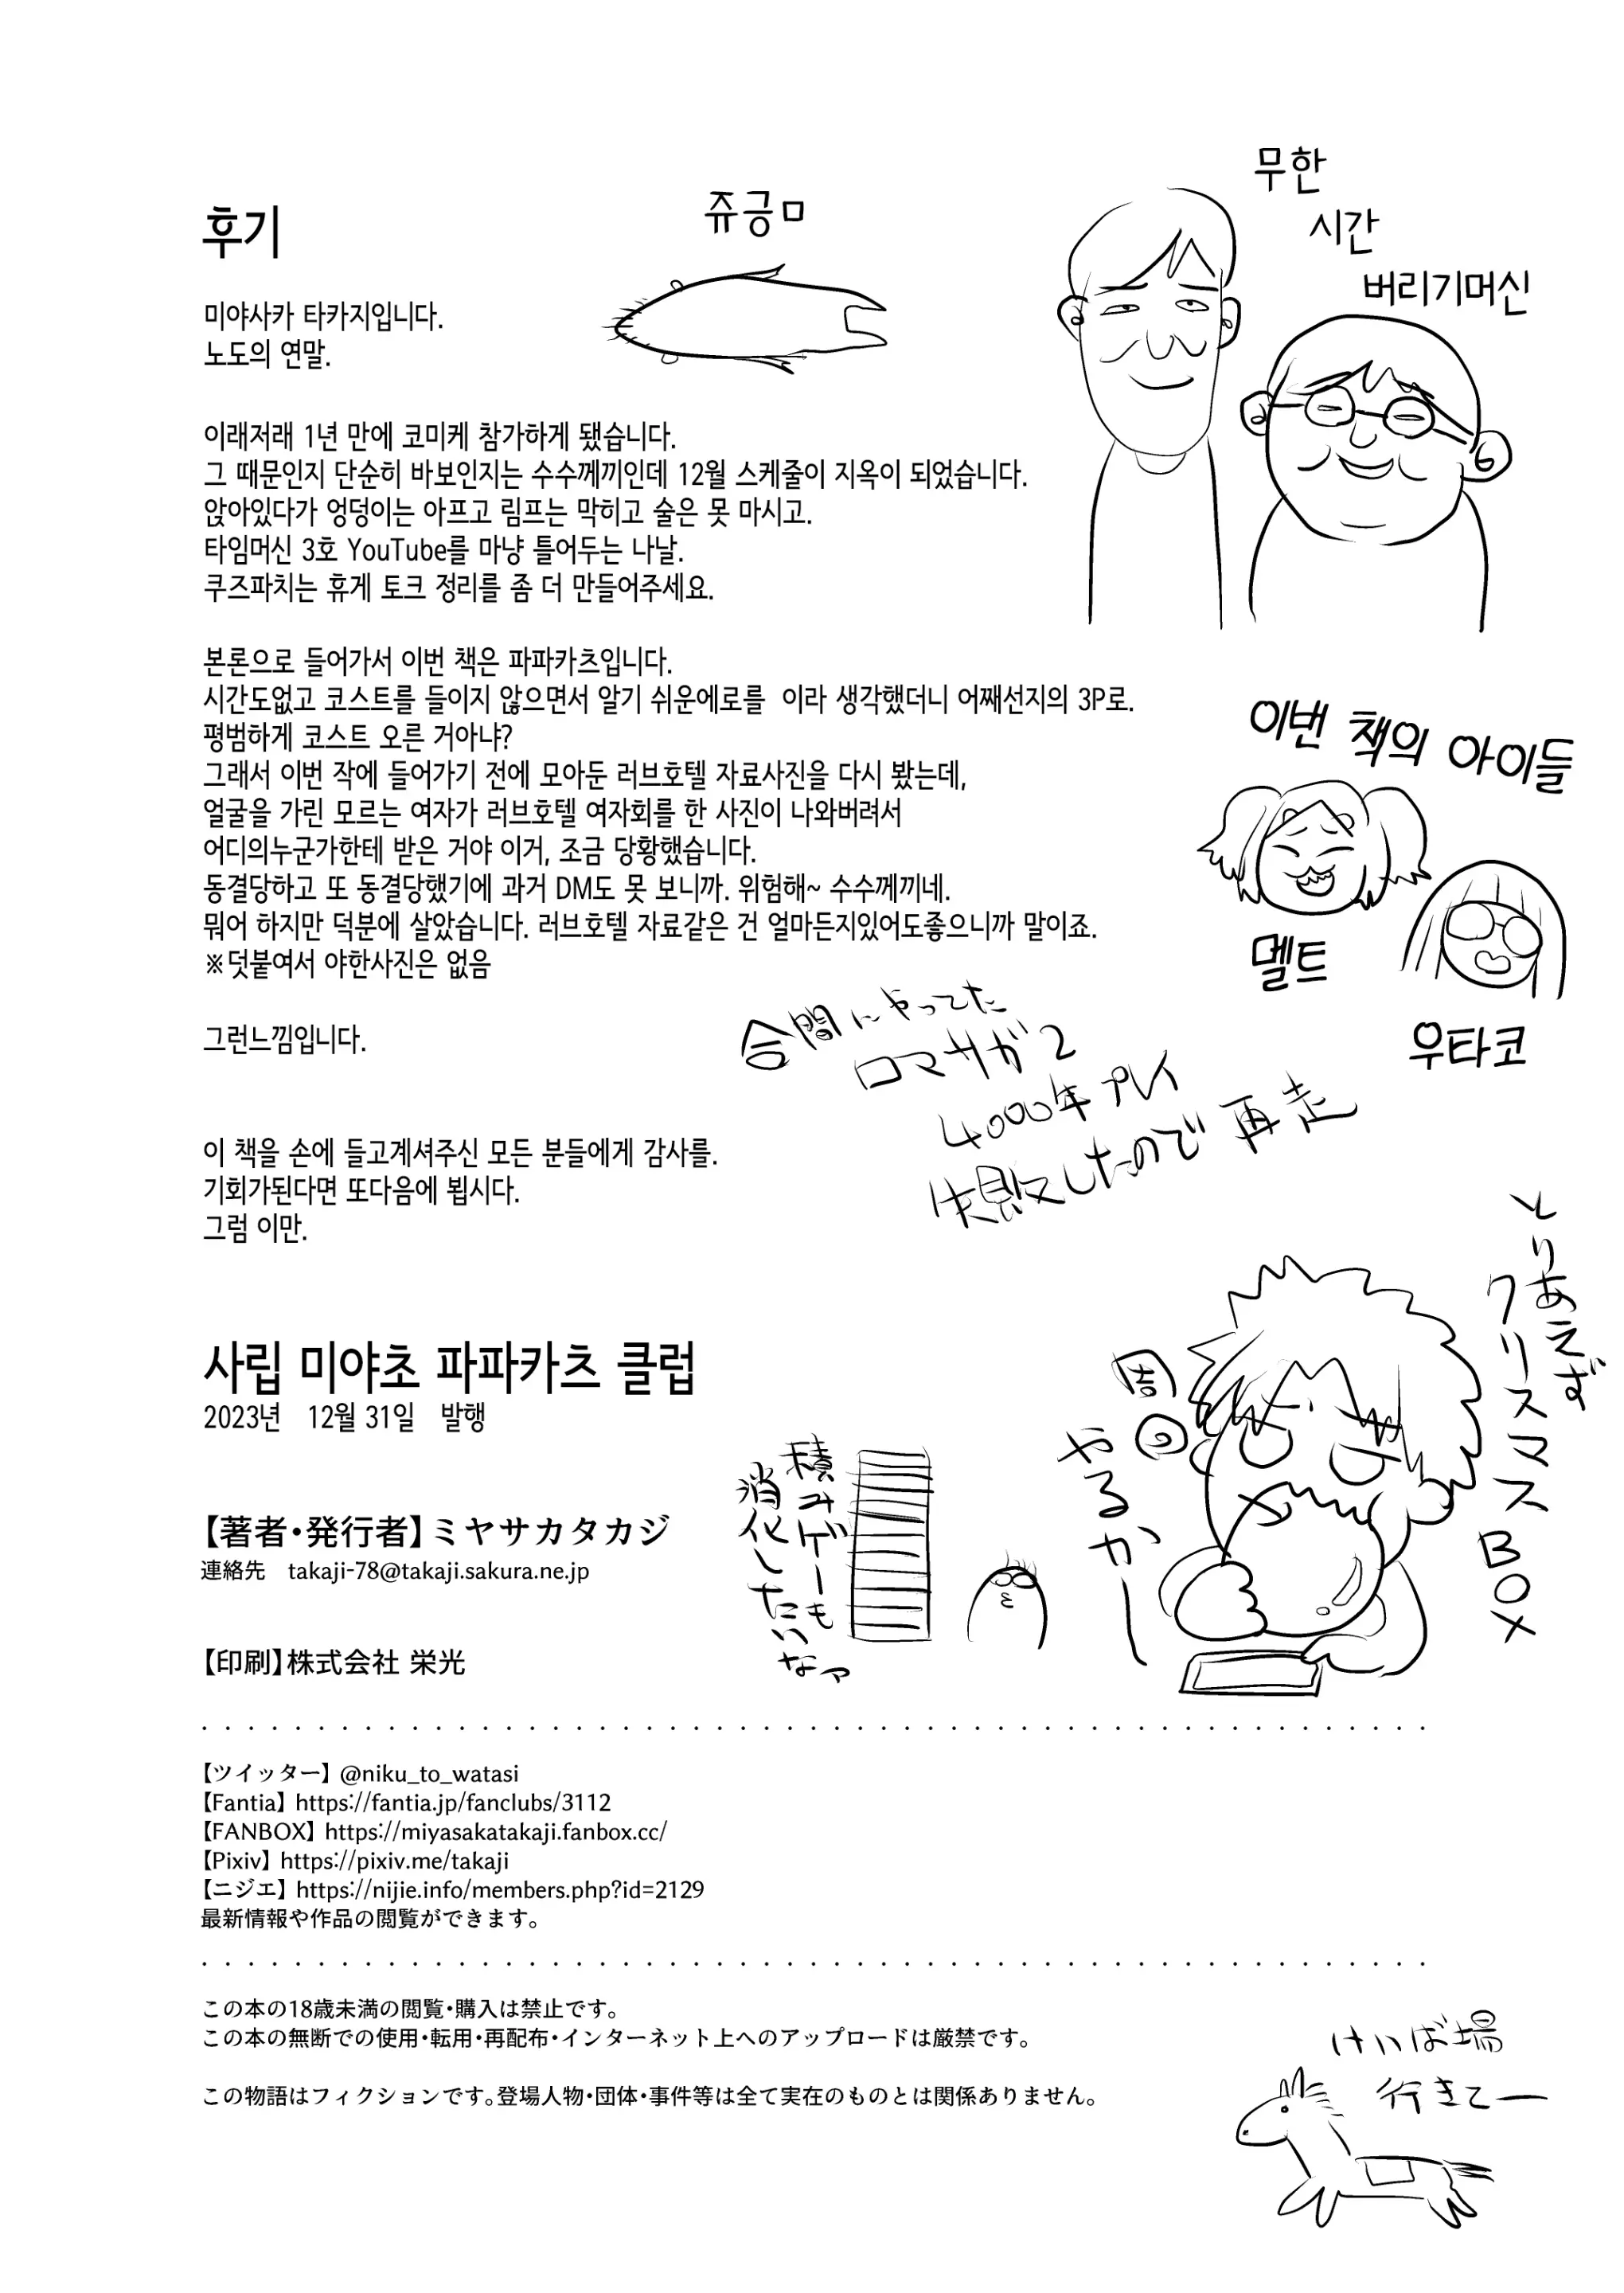 후기
쥬금ㅁ
무한
시간
버리기머신
미야사카 타카지입니다.
노도의 연말.
이래저래 1년 만에 코미케 참가하게 됐습니다.
그 때문인지 단순히 바보인지는 수수께끼인데 12월 스케줄이 지옥이 되었습니다.
앉아있다가 엉덩이는 아프고 림프는 막히고 술은 못 마시고.
타임머신 3호 YouTube를 마냥 틀어두는 나날.
쿠즈파치는 휴게 토크 정리를 좀 더 만들어주세요.
본론으로 들어가서 이번 책은 파파카츠입니다.
시간도없고 코스트를 들이지 않으면서 알기 쉬운에로를  이라 생각했더니 어째선지의 3P로.
평범하게 코스트 오른 거아냐?
그래서 이번 작에 들어가기 전에 모아둔 러브호텔 자료사진을 다시 봤는데,
얼굴을 가린 모르는 여자가 러브호텔 여자회를 한 사진이 나와버려서
어디의누군가한테 받은 거야 이거, 조금 당황했습니다.
동결당하고 또 동결당했기에 과거 DM도 못 보니까. 위험해~ 수수께끼네.
뭐어 하지만 덕분에 살았습니다. 러브호텔 자료같은 건 얼마든지있어도좋으니까 말이죠.
※덧붙여서 야한사진은 없음
그런느낌입니다.
이번 책의 아이들
멜트
우타코
合間にやってた
ロマサガ2
4000年プレイ
失敗したので再走
이 책을 손에 들고계셔주신 모든 분들에게 감사를.
기회가된다면 또다음에 뵙시다.
그럼 이만.
とりあえず
クリスマスBOX
周回
やるかー
積みゲーも
消化したいなァ
사립 미야초 파파카츠 클럽
2023년 12월 31일 발행
【著者・発行者】ミヤサカタカジ
連絡先 takaji-78@takaji.sakura.ne.jp
【印刷】株式会社 栄光
【ツイッター】@niku_to_watasi
【Fantia】https://fantia.jp/fanclubs/3112
【FANBOX】https://miyasakatakaji.fanbox.cc/
【Pixiv】https://pixiv.me/takaji
【ニジエ】https://nijie.info/members.php?id=2129
最新情報や作品の閲覧ができます。
この本の18歳未満の閲覧・購入は禁止です。
この本の無断での使用・転用・再配布・インターネット上へのアップロードは厳禁です。
この物語はフィクションです。登場人物・団体・事件等は全て実在のものとは関係ありません。
けいば場
行きてー